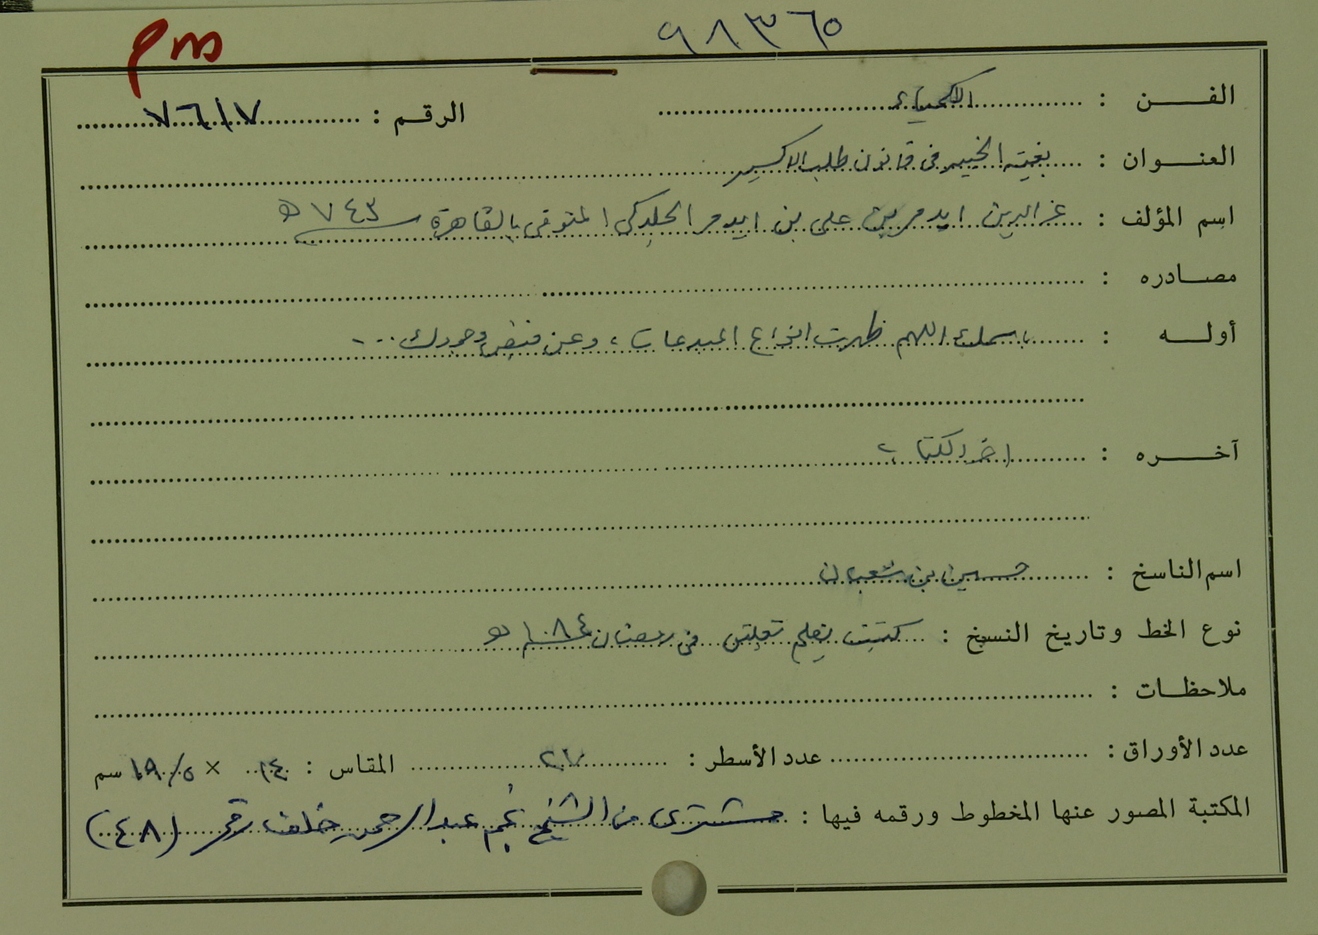 ٩٨٣٦٥
الفـــن : الاكمياء الرقم : ٧٦١٧
العنوان : بغية الخبير في قانون طلب الاكسير
اسم المؤلف : عز الدين ايدمر بن علي بن ايدمر الجلدكي المتوفى بالقاهرة ٧٤٣ هـ
مصادره :
أولـه : باسمك اللهم ظهرت انواع المبدعات ، وعن فيض وجودك ...
آخـره : اخر الكتاب
اسم الناسخ : حسين بن شعبان
نوع الخط وتاريخ النسخ : كتبت بقلم تعليق في رمضان ١٠٨٤ هـ
ملاحظات :
عدد الأوراق : عدد الأسطر : ٢٧ المقاس : ١٤ × ١٩/٥ سم
المكتبة المصور عنها المخطوط ورقمه فيها : مشترى من الشيخ نجم عبد الرحمن خلف رقم (٤٨)